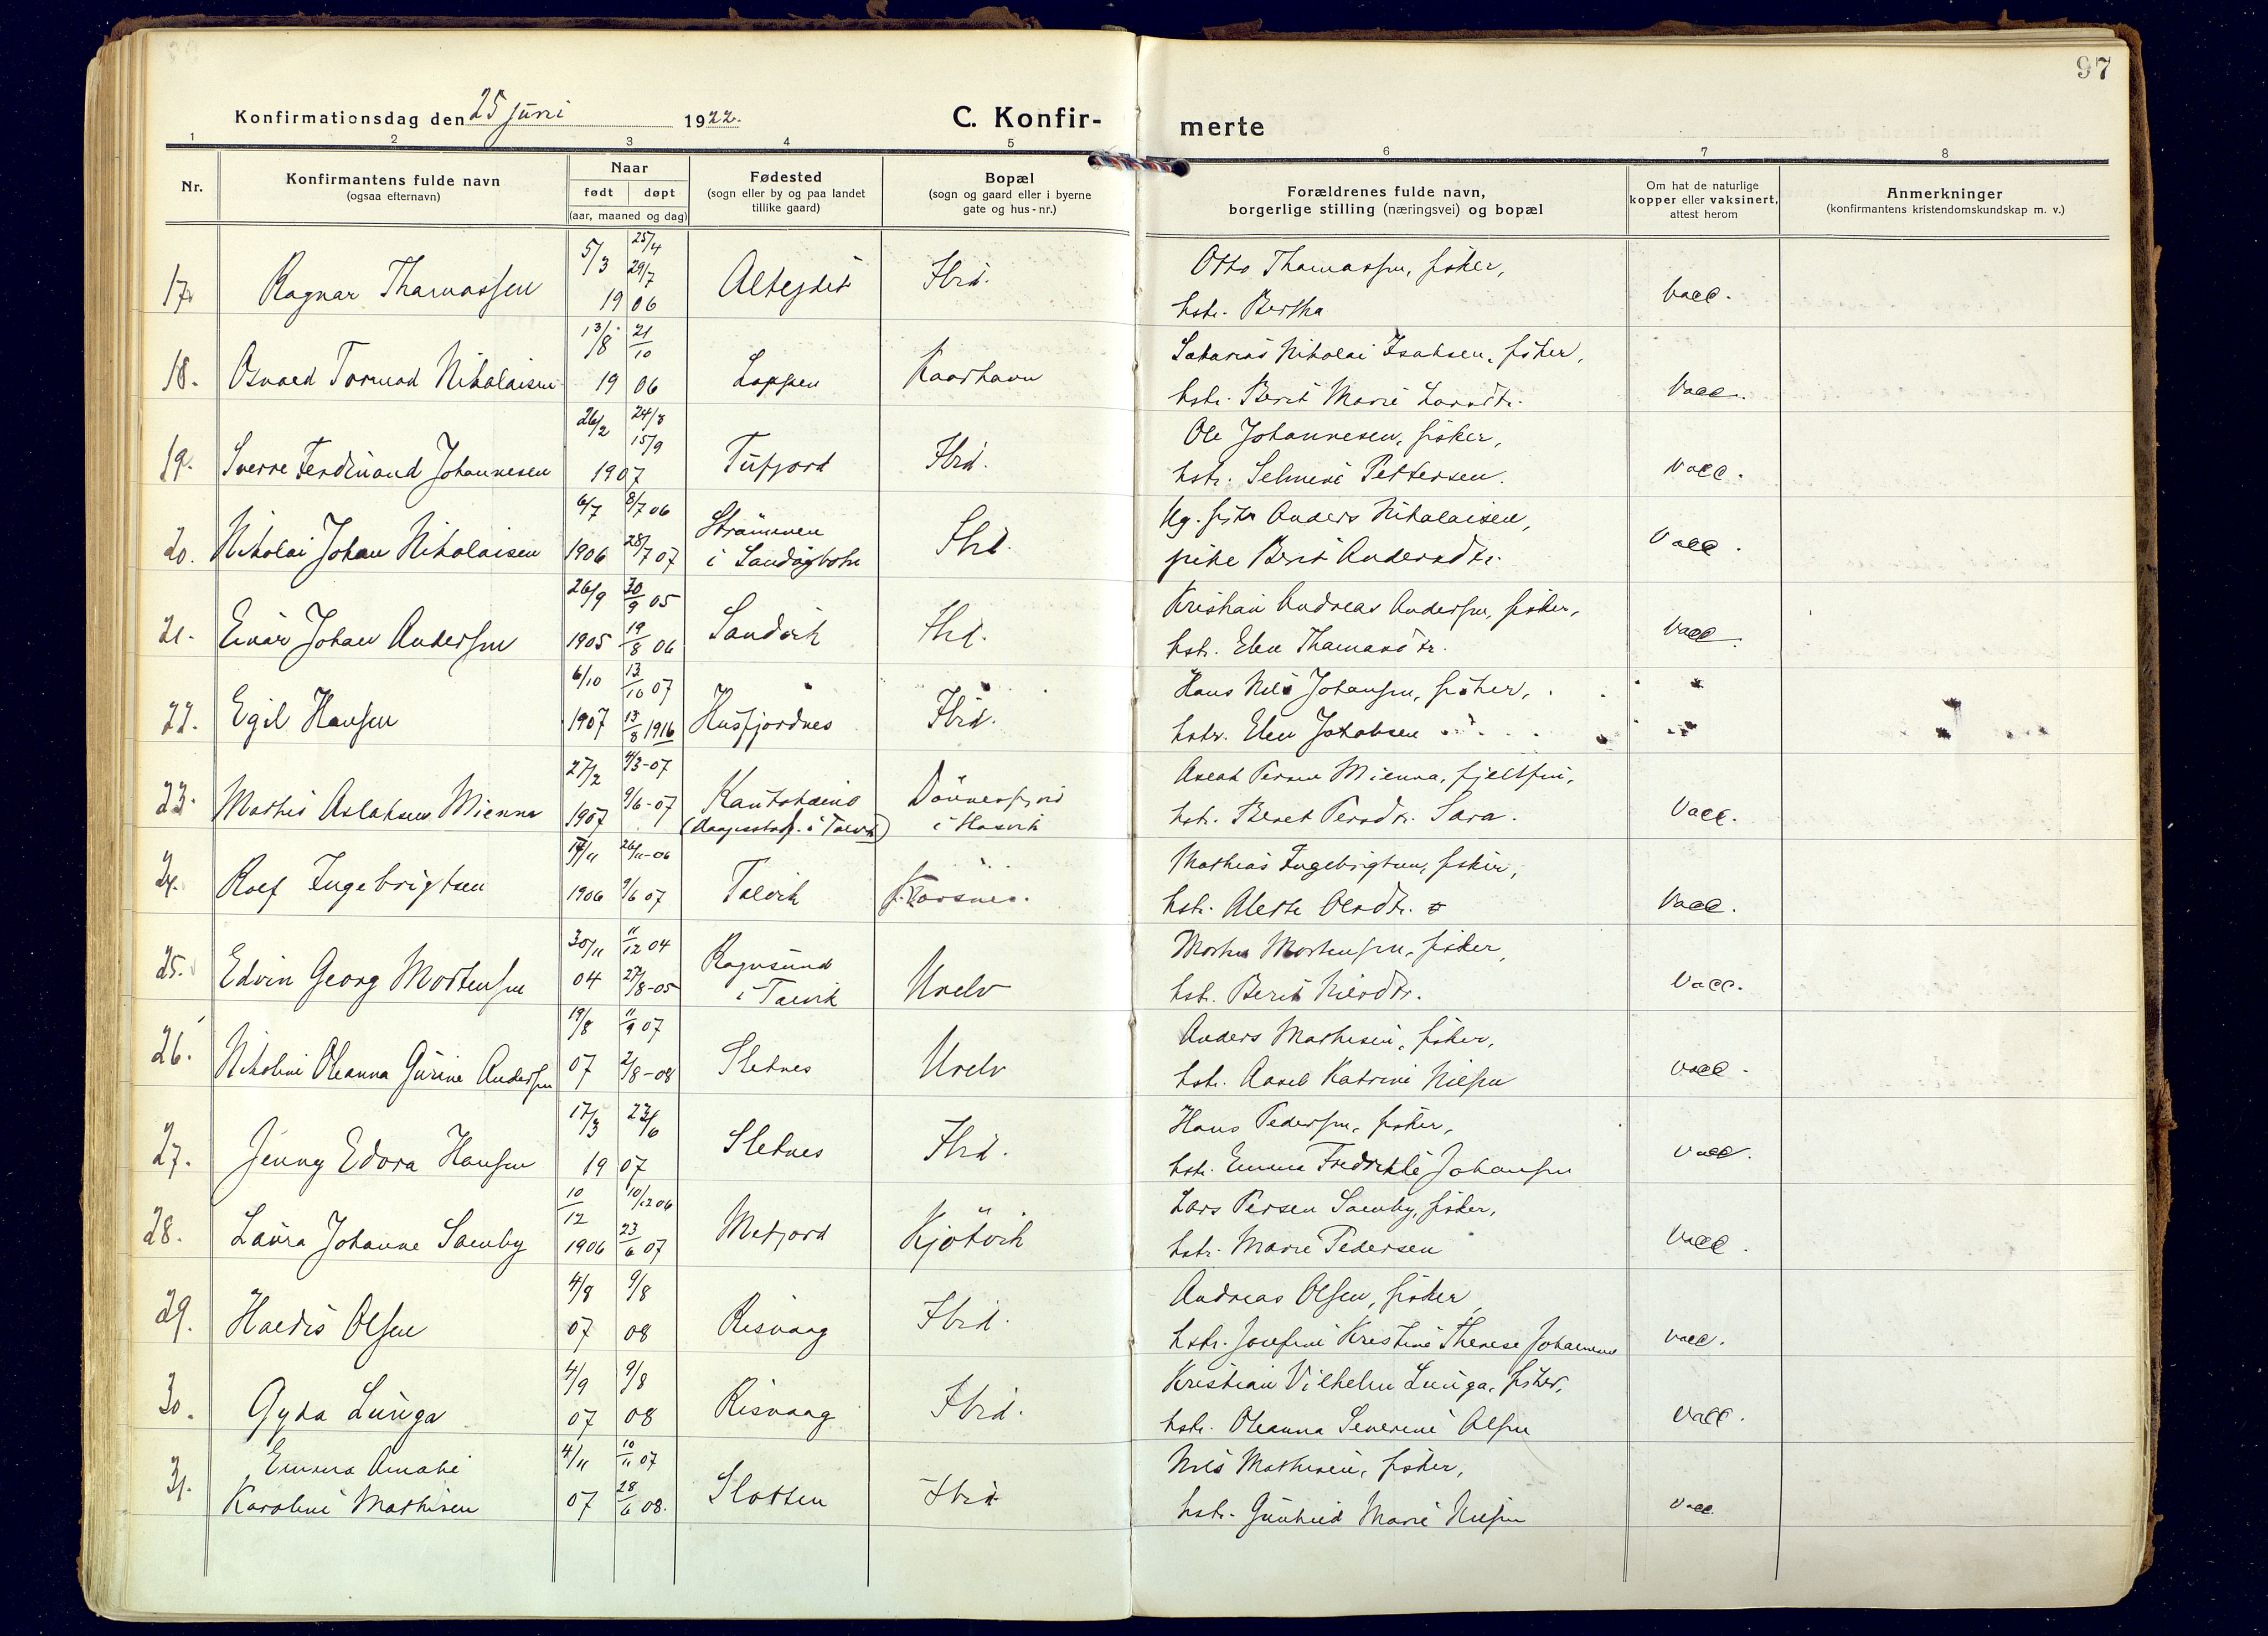 97
Konfirmationsdag den 25 juni 1922.
C. Konfir- merte
1 2 3 4 5 6 7 8
Nr.
Konfirmantens fulde navn
(ogsaa efternavn)
Naar
født døpt
(aar, maaned og dag)
Fødested
(sogn eller by og paa landet
tillike gaard)
Bopæl
(sogn og gaard eller i byerne
gate og hus-nr.)
Forældrenes fulde navn,
borgerlige stilling (næringsvei) og bopæl
Om hat de naturlige
kopper eller vaksinert,
attest herom
Anmerkninger
(konfirmantens kristendomskundskap m. v.)
5/3 25/4 29/7 Otto Thomassen, fisker,
17. Ragnar Thomassen 19 06 Alteidet Ibid. hstr. Bertha Vacc.
13/8 21/10 Sakarias Nikolai Isaksen, fisker,
18. Osvald Tormod Nikolaisen 19 06 Loppen Kaarhavn hstr. Berit Marie Larsdtr. Vacc.
26/2 24/3 15/9 Ole Johannesen, fisker,
19. Sverre Ferdinand Johannesen 1907 Tufjord Ibid. hstr. Selmine Pettersen. Vacc.
6/7 8/7 06 Strømmen Ug. fisker Anders Nikolaisen,
20. Nikolai Johan Nikolaisen 1906 28/7 07 i Ibid. pike Berit Andersdtr. Vacc.
26/9 30/9 05 Kristian Andreas Andersen, fisker,
21. Einar Johan Andersen 1905 19/8 06 Sandvik Ibid. hstr. Elen Thomasdtr. Vacc.
6/10 13/10 07 Hans Nils Johansen, fisker,
22. Egil Hansen 1907 13/8 1916 Husfjordnes Ibid. hstr. Elen Jakobsen
27/2 4/3-07 Aslak Persen Mienna, fjeldfin,
23. Mathis Aslaksen Mienna 1907 9/6-07 Kautokeino Dönnesfjord
i Talvik) i Hasvik hstr. Beret Persdtr. Sara. Vacc.
17/11 26/11-06 Mathias Ingebrigtsen, fisker,
24. Rolf Ingebrigtsen 1906 9/6 07 Talvik Korsnes. hstr. Alette Olsdtr. Vacc.
30/11 11/12 04 Rognsund Morten Mortensen, fisker,
25. Edvin Georg Mortensen 04 27/8-05 i Talvik Urelv hst. Berit Nilsdtr. Vacc.
19/8 11/9 07 Anders Mathisen, fisker,
26. Nikoline Oleanna Gurine Andersen 07 2/8-08 Sletnes Urelv hstr. Aasel Katrine Nilsen Vacc.
17/3 23/6 Hans Pedersen, fisker,
27. Jenny Edora Hansen 19 07 Sletnes Ibid. hstr. Emma Fredrikke Johansen Vacc.
10/12 10/12 06 Lars Persen Samby, fisker,
28. Laura Johanne Samby 1906 23/6 07 Mefjord Kjötvik hstr. Marie Pedersen Vacc.
4/8 9/8 Andreas Olsen, fisker,
29. Haldis Olsen 07 08 Risvaag Ibid. hstr. Josefine Kristine Therese Johannesen Vacc.
4/9 9/8 Kristian Vilhelm Lunga, fisker,
30. Gyda Lunga 07 08 Risvaag Ibid. hstr. Oleanna Severine Olsen Vacc.
Emma Amalie 4/11 10/11 07 Nils Mathisen, fisker,
31. Karoline Mathisen 07 28/6 08. Slotten Ibid. hstr. Gunhild Marie Nilsen Vacc.